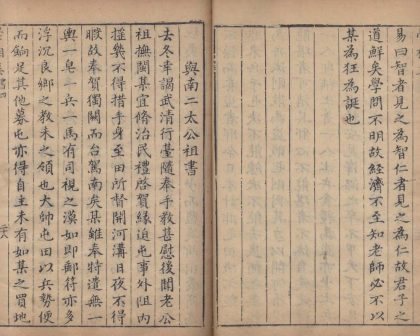 易曰智者見之為智仁者見之為仁故君子之
道鮮矣學問不明故經濟不至知老師必不以
某為狂為誕也
與南二太公祖書
去冬幸謁武清行臺隨奉手教甚慰後聞老公
祖撫閩集宜脩治民禮啓賀緣迫屯事外阻內
撓幾不得措手身至田所督開河溝日夜不得
暇故奉賀獨闕而台駕南矣某雖奉特遣無一
輿一皂一兵一馬有司視之漠如即郵符亦多
浮沉良鄉之教未之領也大師屯田以兵勢便
而餉足其他募屯亦得自主未有如某之買地